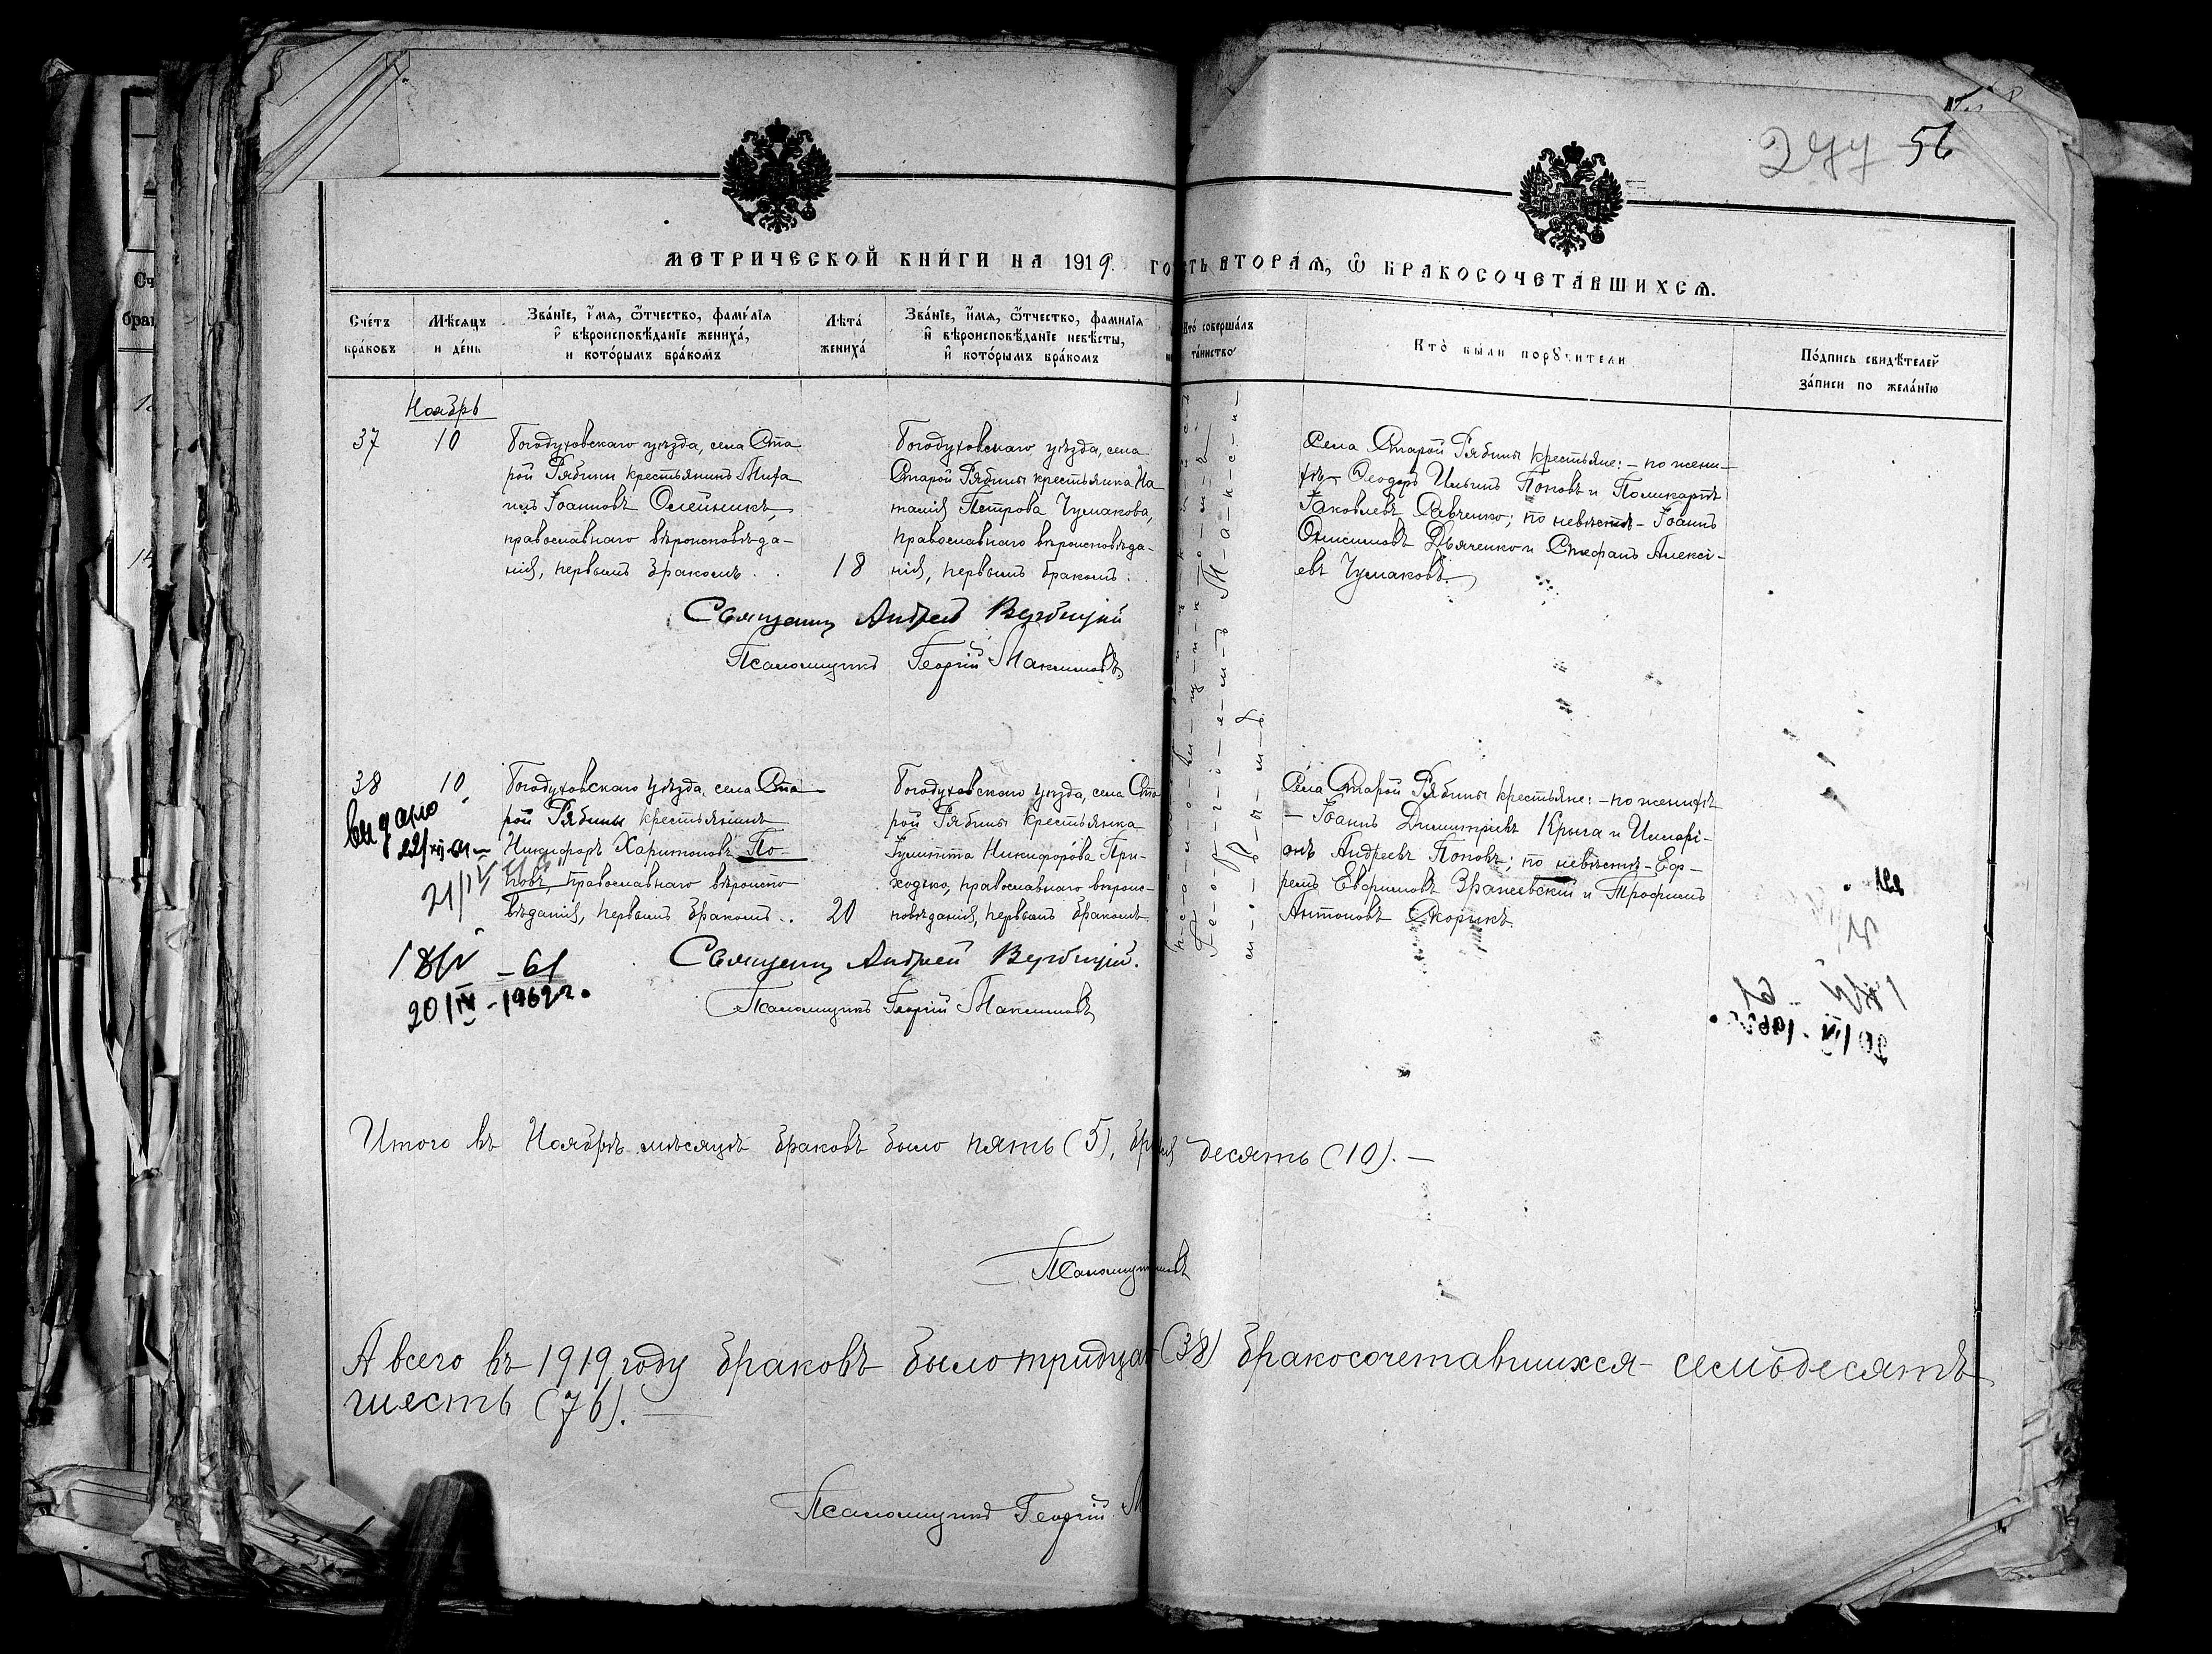 277 56
МЕТРИЧЕСКОЙ КНИГИ НА 1919 ГО
СТЬ ВТОРАѦ, Ѿ БРАКОСОЧЕТАВШИХСѦ.
Счетъ браковъ
Мѣсѧцъ и день
Званїе, имѧ, ѿтчество, фамилїѧ
и вѣроисповѣданїе жениха,
и которымъ бракомъ
Лѣта жениха
Званїе, имѧ, ѿтчество, фамилїѧ
и вѣроисповѣданїе невѣсты,
и которымъ бракомъ
Кто совершалъ таинство
Кто были порꙋчители
Подпись свидѣтелей
записи по желанїю
Ноябрь
37 10
Богодуховскаго уѣзда, села Ста
рой Рябины крестьянинъ Миха
илъ Іоанновъ Олейникъ,
православнаго вѣроисповѣда-
нія, первымъ бракомъ.
18
Богодуховскаго уѣзда, села
Старой Рябины крестьянка На
талія Петрова Чумакова,
православнаго вѣроисповѣда-
нія, первымъ бракомъ.
Села Старой Рябины крестьяне: - по жени-
хѣ - Ѳеодоръ Ильинъ Поповъ и Поликарпъ
Іаковлевъ Савченко; по невѣстѣ - Іоаннъ
Онисимовъ Дьяченко и Стефанъ Алексі-
евъ Чумаковъ.
Священ Андрей Вербицкій
Псаломщикъ Георгій Максимовъ
38 10
Богодуховскаго уѣзда, села Ста
рой Рябины крестьянинъ
Никифоръ Харитоновъ По-
повъ, православнаго вѣроиспо
вѣданія, первымъ бракомъ..
20
Богодуховскаго уѣзда, села Ста
рой Рябины крестьянка
Іулитта Никифорова При-
ходько, православнаго вѣроис-
повѣданія, первымъ бракомъ
Села Старой Рябины крестьяне: - по женихѣ
- Іоаннъ Димитріевъ Крыга и Иларі-
онъ Андреевъ Поповъ; по невѣстѣ - Еф-
ремъ Евфимовъ Бражевскій и Трофимъ
Антоновъ Скорикъ.
видано
22/XII-61
21/IV
18/V - 61
20/IV - 1962 г.
Священ Андрей Вербицкій.
Псаломщикъ Георгій Максимовъ
Итого въ Ноябрѣ мѣсяцѣ браковъ было пять (5), десять (10). -
А всего въ 1919 году браковъ было тридцат (38) бракосочетавшихся - семьдесятъ
шесть (76). -
Псаломщикъ Георгій М